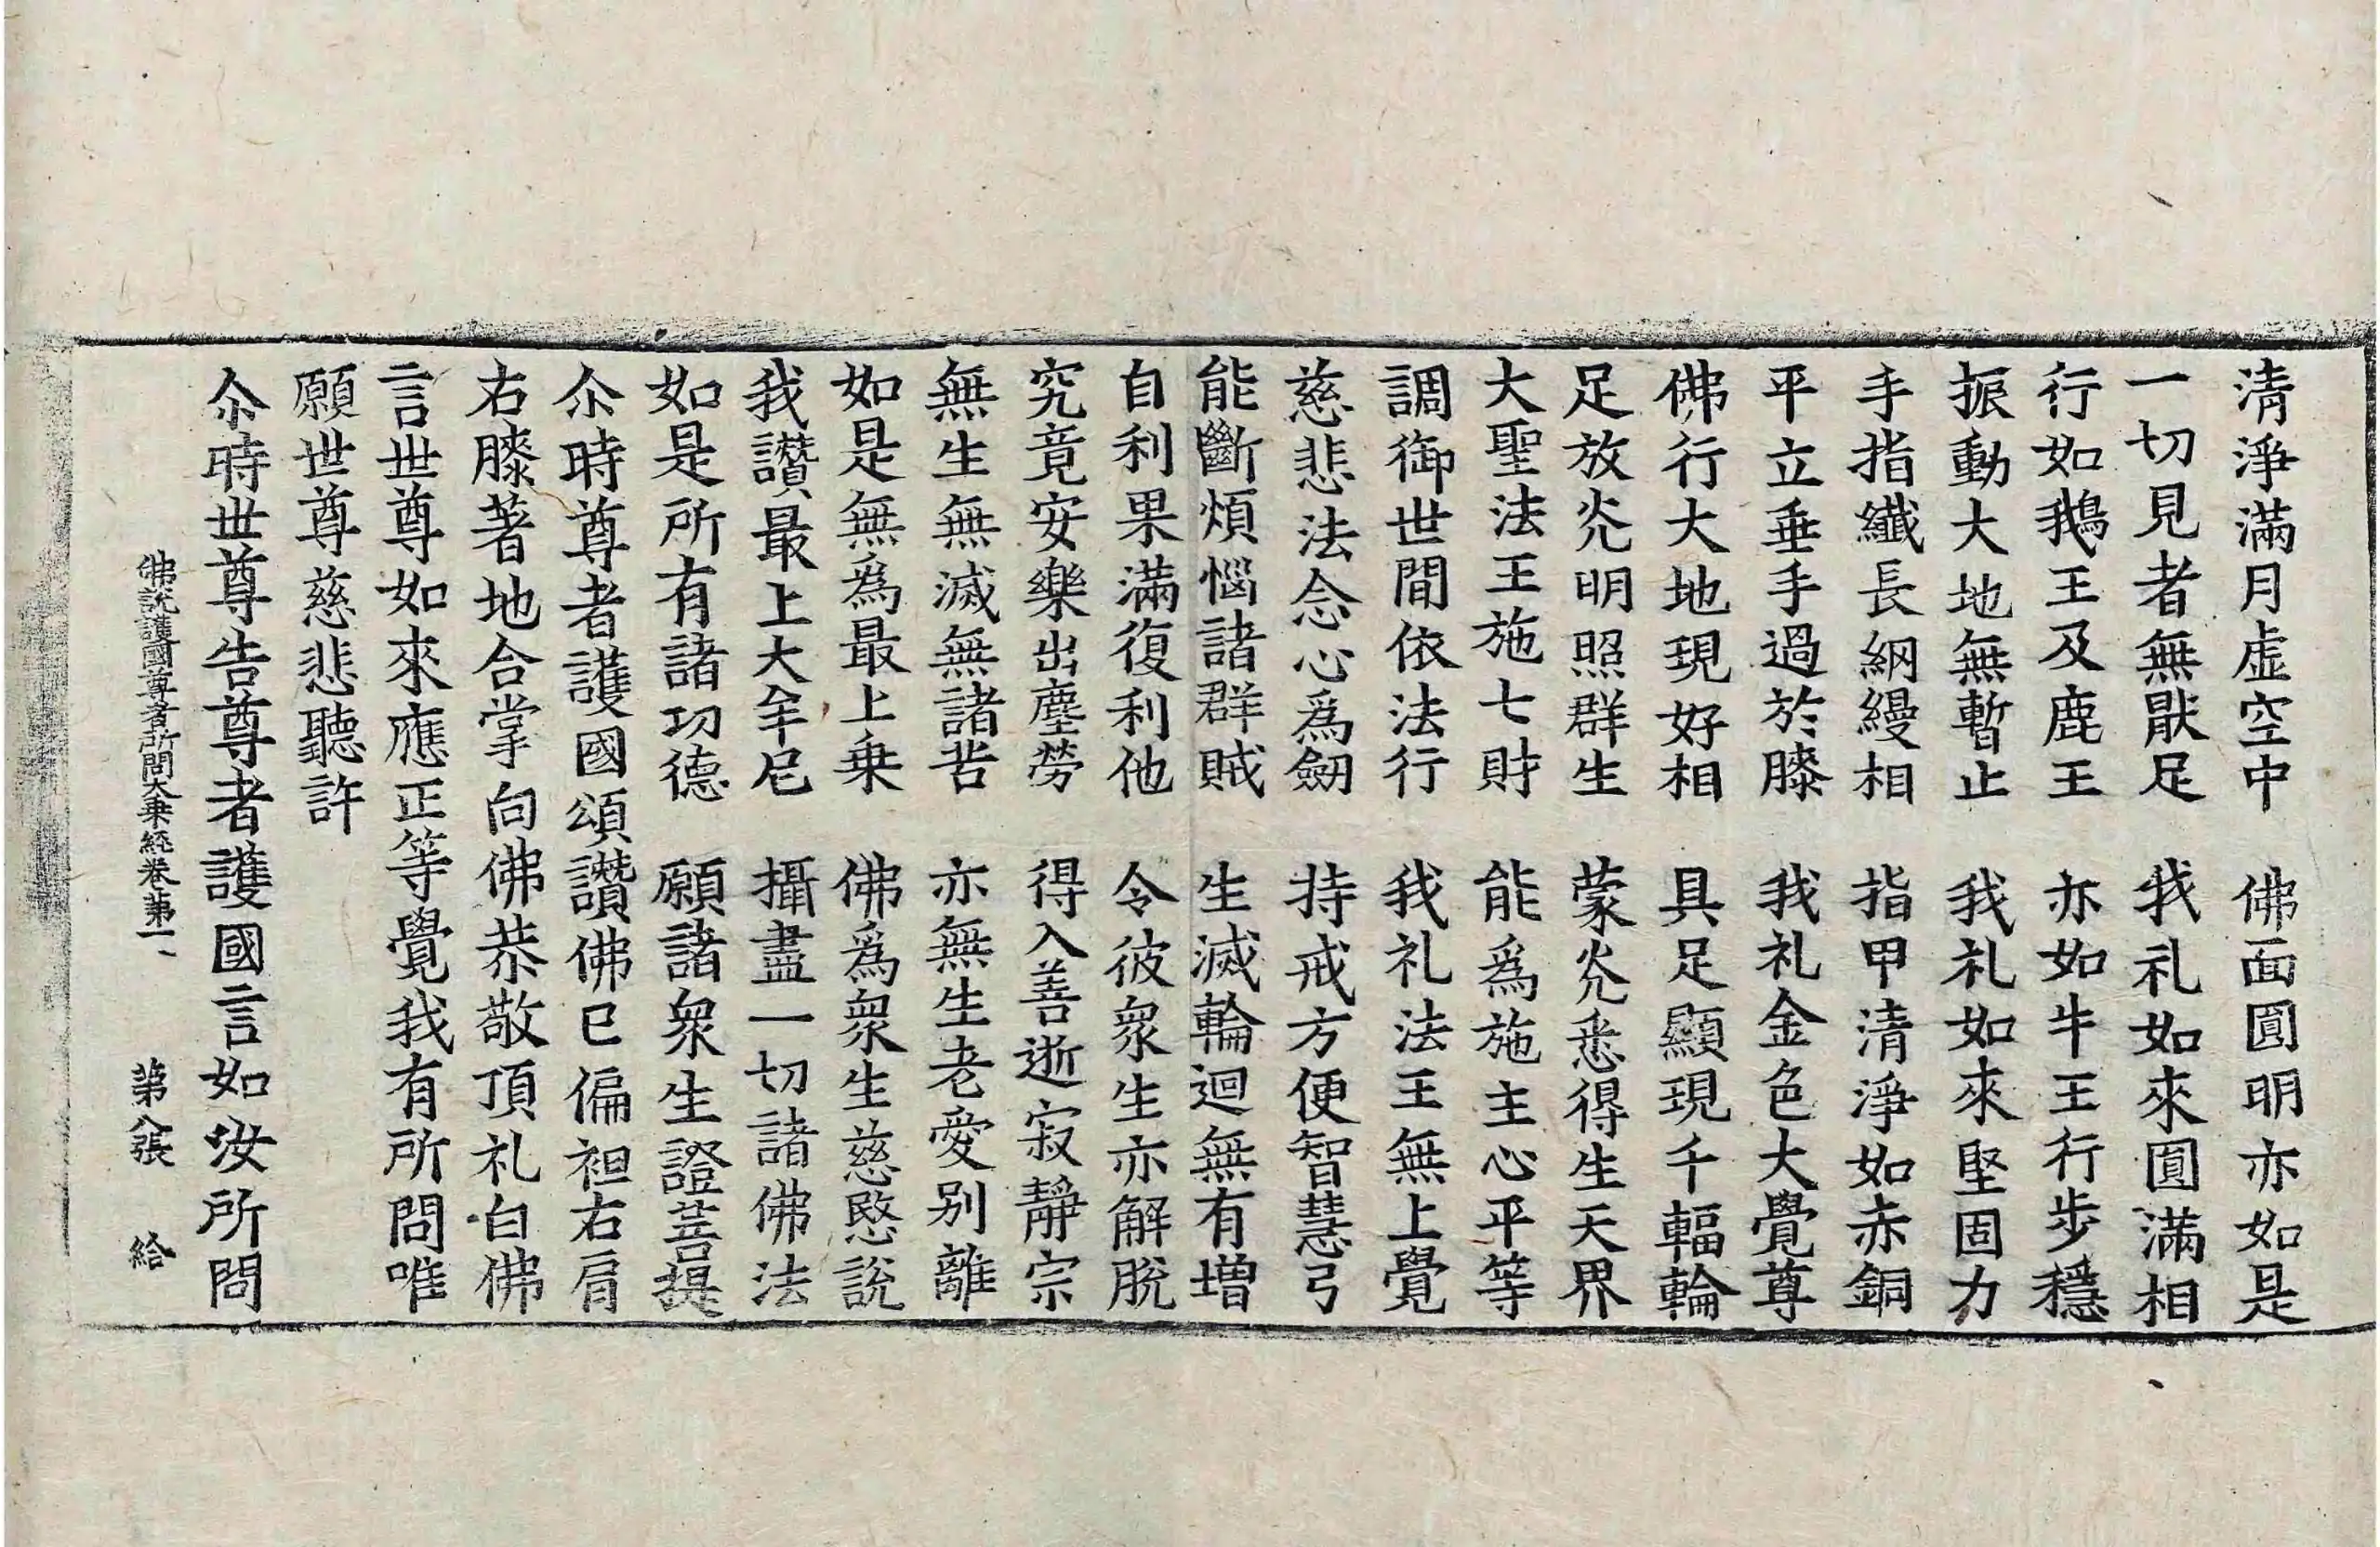 清淨滿月虛空中　佛面圓明亦如是
一切見者無猒足　我礼如來圓滿相
行如鵝王及鹿王　亦如牛王行步穩
振動大地無暫止　我礼如來堅固力
手指纖長網縵相　指甲清淨如赤銅
平立垂手過於膝　我礼金色大覺尊
佛行大地現好相　具足顯現千輻輪
足放光明照群生　蒙光悉得生天界
大聖法王施七財　能爲施主心平等
調御世間依法行　我礼法王無上覺
慈悲法念心爲劒　持戒方便智慧弓
能斷煩惱諸群賊　生滅輪迴無有增
自利果滿復利他　令彼衆生亦解脫
究竟安樂出塵勞　得入善逝寂靜宗
無生無滅無諸苦　亦無生老愛别離
如是無爲最上乘　佛爲衆生慈愍說
我讃最上大牟尼　攝盡一切諸佛法
如是所有諸功德　願諸衆生證菩提
尒時尊者護國頌讃佛已偏袒右肩
右膝著地合掌向佛恭敬頂礼白佛
言世尊如來應正等覺我有所問唯
願世尊慈悲聽許
尒時世尊告尊者護國言如汝所問
佛說護國尊者所問大乘經卷第一　第八張　給